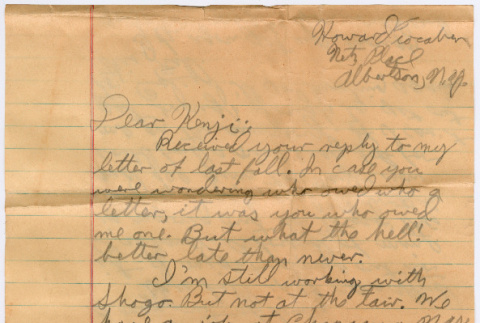 Howard
Netz Place
Albertson, N.Y.
Dear Kenji:
Received your reply to my
letter of last fall. In case you
were wondering who owed who a
letter, it was you who owed
me one. But what the hell!
better late than never.
I'm still working with
Shogo. But not at the Taw. We